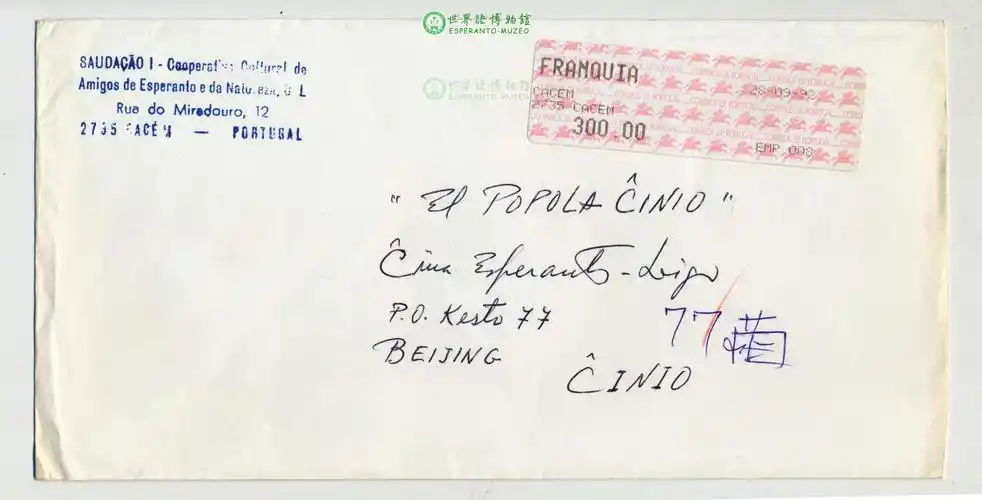 世界語博物館
ESPERANTO-MUZEO
SAUDAÇÃO I - Cooperativa Cultural de
Amigos de Esperanto e da Natureza,
Rua do Miradouro, 12
2735 CACÉM — PORTUGAL
世界語博物館
ESPERANTO-MUZEO
FRANQUIA
28-09-92
CACEM
2735 CACEM
300.00
EMP 008
" El POPOLA ĈINIO "
Ĉina Esperanto-Ligo
P.O. Kesto 77
77
BEIJING
ĈINIO